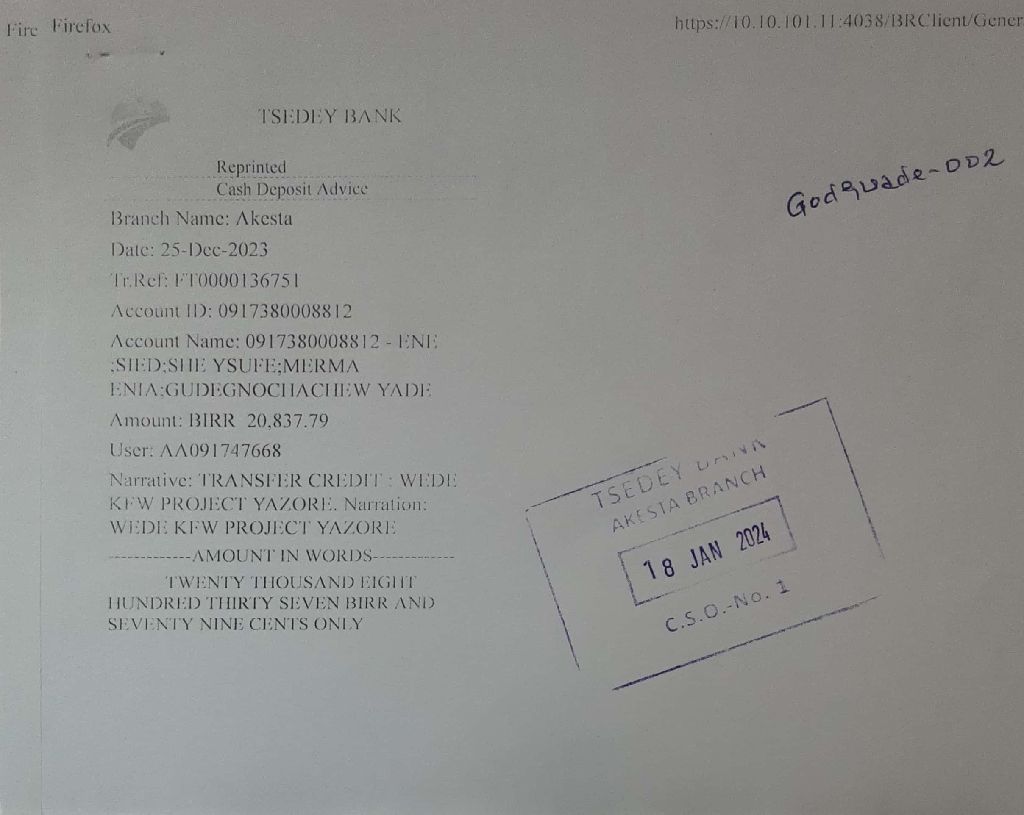 Fire Firefox
https://10.10.101.11:4038/BRClient/Gener
TSEDEY BANK
Reprinted
Cash Deposit Advice
Godguade-002
Branch Name: Akesta
Date: 25-Dec-2023
Tr.Ref: FT0000136751
Account ID: 0917380008812
Account Name: 0917380008812 - ENE
;SIED;SHE YSUFE;MERMA
ENIA;GUDEGNOCHACHEW YADE
Amount: BIRR 20,837.79
User: AA091747668
Narrative: TRANSFER CREDIT : WEDE
KFW PROJECT YAZORE. Narration:
WEDE KFW PROJECT YAZORE
------------AMOUNT IN WORDS------------
TWENTY THOUSAND EIGHT
HUNDRED THIRTY SEVEN BIRR AND
SEVENTY NINE CENTS ONLY
TSEDEY BANK
AKESTA BRANCH
18 JAN 2024
C.S.O.-No. 1